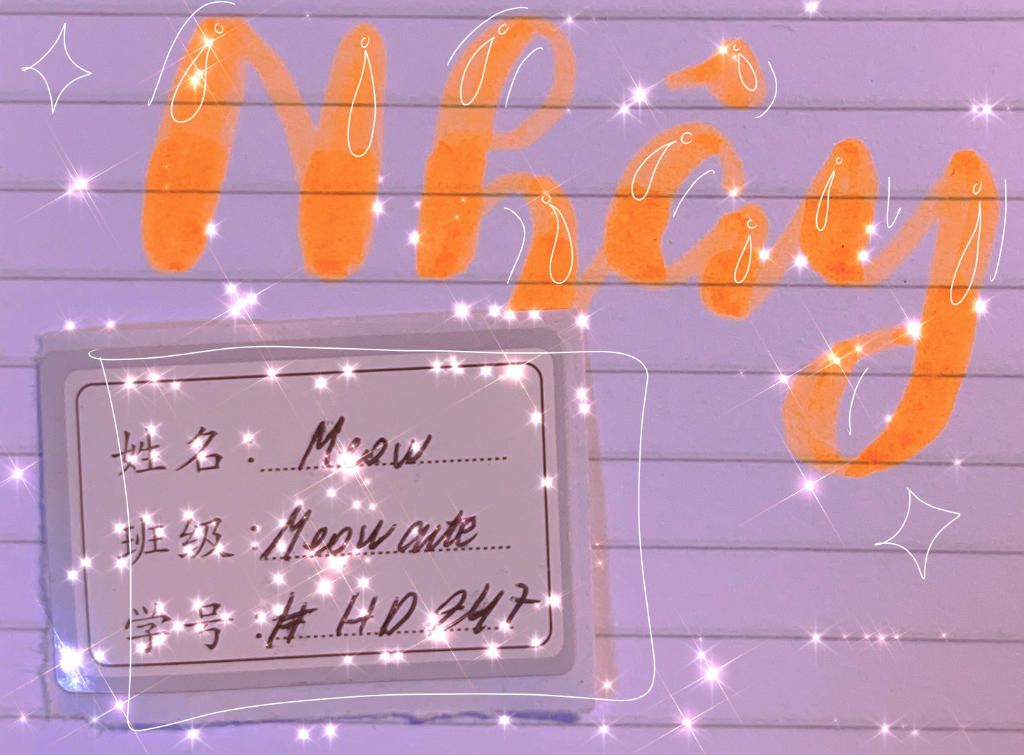 Nhây
姓名: Meow
班级: Meow cute
学号: # HD 247